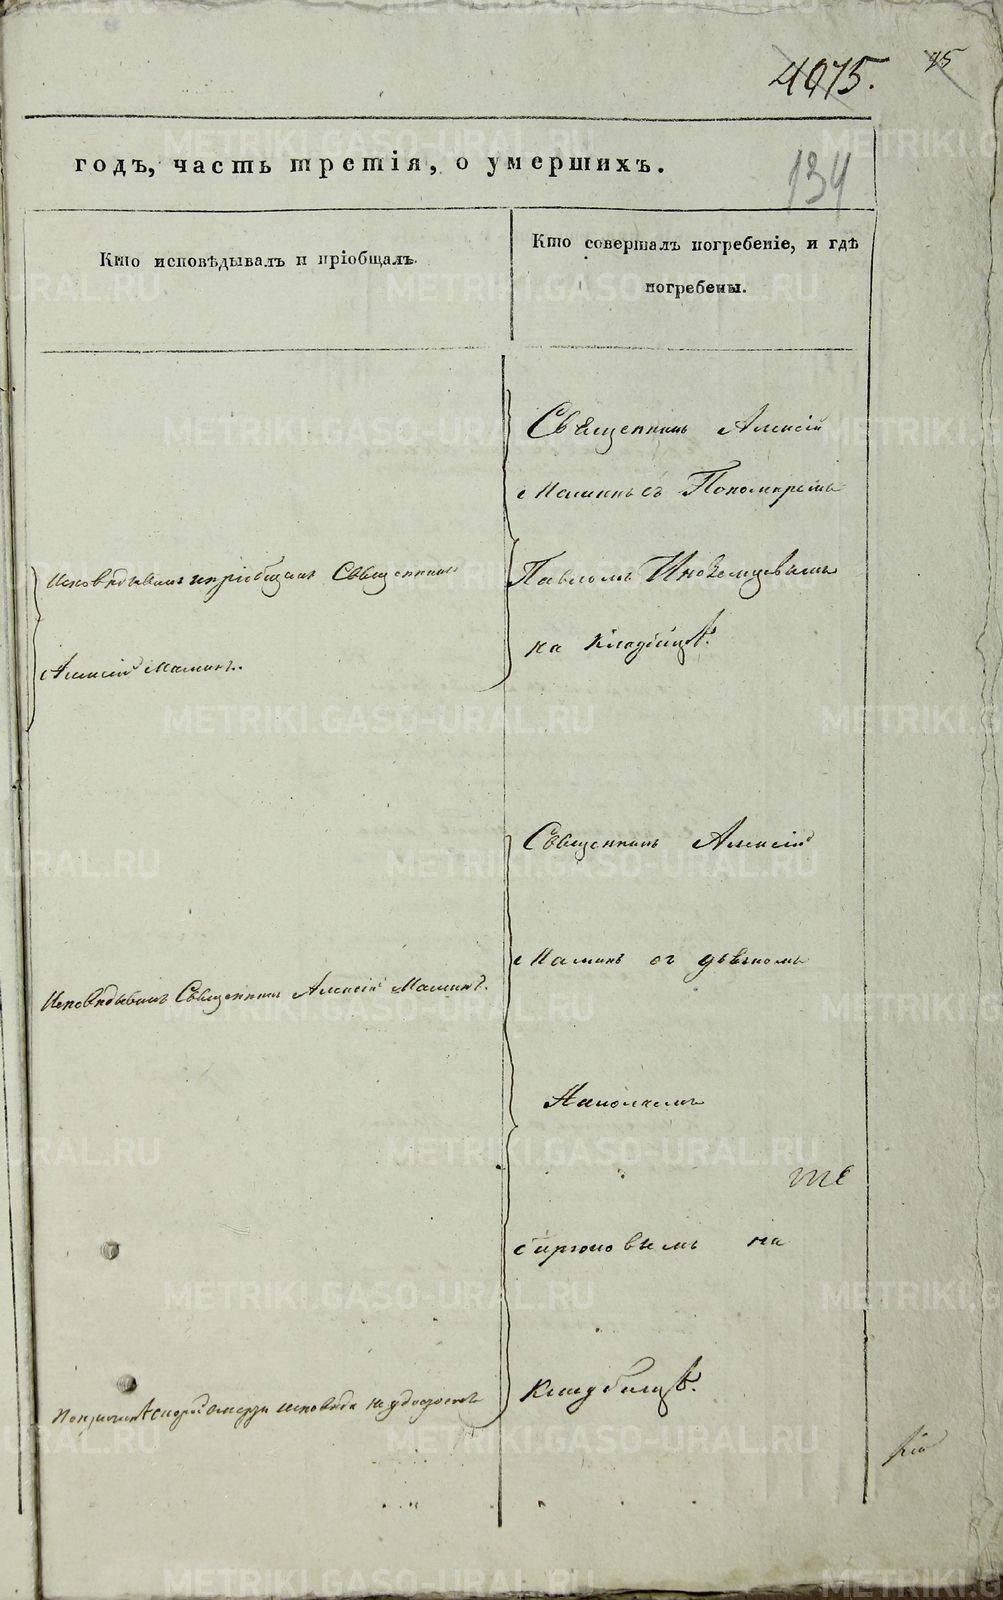 4075.
95
годъ, часть третія, о умершихъ.
134
Кто исповѣдывалъ и пріобщалъ.
Кто совершалъ погребеніе, и гдѣ
погребены.
Священникъ Алексій
Маминъ съ Пономаремъ
Исповѣдывалъ и пріобщалъ Священникъ
Павломъ Иноземцевымъ
на кладбищѣ.
Алексій Маминъ.
Священникъ Алексій
Маминъ съ дьячкомъ
Исповѣдывалъ Священникъ Алексій Маминъ.
на
кладбищѣ.
исповѣди не удостоенъ
METRIKI.GASO-URAL.RU